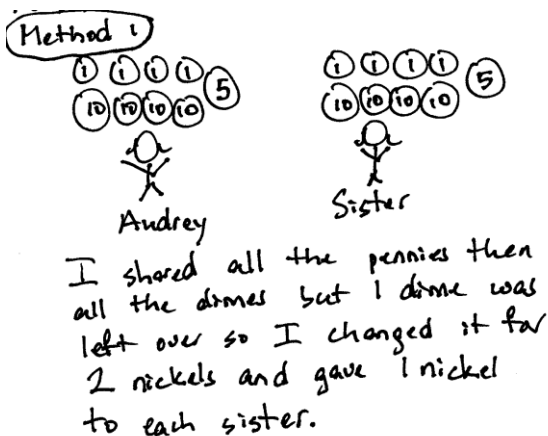 Method 1
1 1 1 1 5 1 1 1 1 5
10 10 10 10 10 10 10 10
Audrey Sister
I shared all the pennies then
all the dimes but 1 dime was
left over so I changed it for
2 nickels and gave 1 nickel
to each sister.